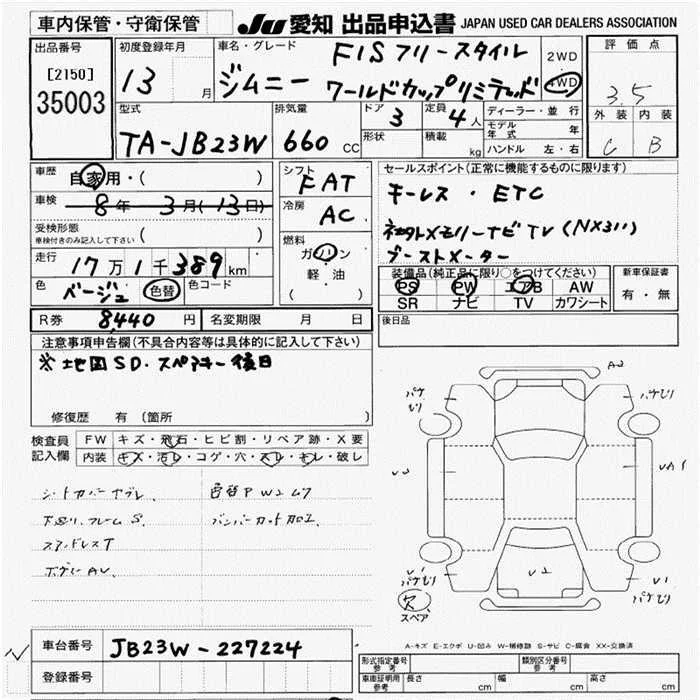 車内保管・守衛保管 JU 愛知 出品申込書 JAPAN USED CAR DEALERS ASSOCIATION
出品番号 [2150] 35003
初度登録年月 13 月
車名・グレード ジムニー FISフリースタイル ワールドカップリミテッド
2WD
4WD
評価点 3.5
外装 内装
C B
型式 TA-JB23W
排気量 660 CC
ドア 3
定員 4人
形状
積載 kg
ディーラー・並行
モデル年式 年
ハンドル 左・右
車歴 自家用・( )
車検 8年 3月(13日)
受検形態 車検付きのみ記入して下さい ( )
走行 17万1千389km
色 ベージュ 色替 色コード
シフト FAT
冷房 AC
燃料 ガソリン
軽・油
( )
セールスポイント(正常に機能するものに限ります)
キーレス・ETC
社外メモリーナビTV(NX311)
ブーストメーター
装備品(純正品に限り○をつけてください)
PS PW エアB AW
SR ナビ TV カワシート
新車保証書
有・無
R券 8,440円 名変期限 月 日
後日品
注意事項申告欄(不具合内容等は具体的に記入して下さい)
※地図SD.スペアキー後日
修復歴 有 (箇所 )
検査員記入欄 FW キズ・飛石・ヒビ割・リペア跡・X要
内装 キズ・汚レ・コゲ・穴・スレ・キレ・破レ
シートカバー
下回リ.フレームS.
ボデーAV.
色替P
バンパーカット加工
A2
U2
V2
V1
V1
欠
スペア
車台番号 JB23W-227224
登録番号
A-キズ E-エクボ U-凹み W-補修跡 S-サビ C-腐食 XX-交換済
形式指定番号 参考 類別区分番号 参考
車庫証明用 参考 長さ cm 幅 cm 高さ cm